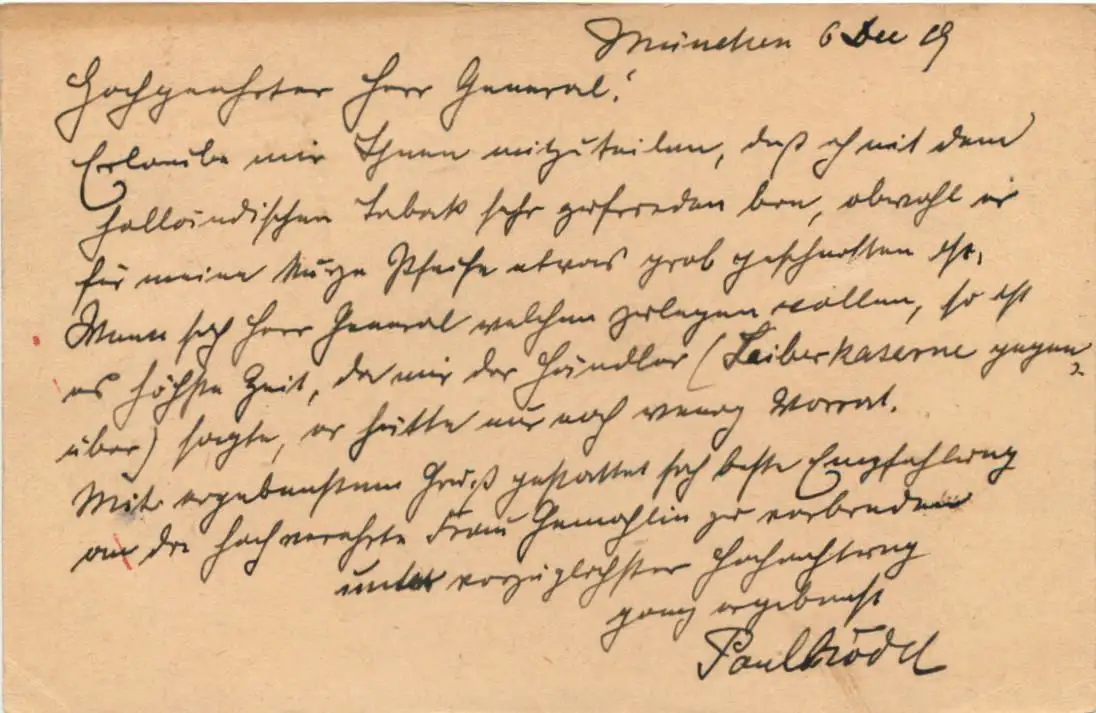 München 6 Dec 19
Hochgeehrter Herr General!
Erlaube mir Ihnen mitzuteilen, daß ich mit dem
holländischen Tabak sehr zufrieden bin, obwohl er
für meine kurze Pfeife etwas grob geschnitten ist.
Wenn sich Herr General welchen zulegen wollen, so ist
es höchste Zeit, da mir der Händler (Leiberkaserne gegen-
über) sagte, er hätte nur noch wenig Vorrat.
Mit ergebenstem Gruß gestattet sich beste Empfehlung
an die hochverehrte Frau Gemahlin zu verbinden
unter vorzüglichster Hochachtung
ganz ergebenst
Paul